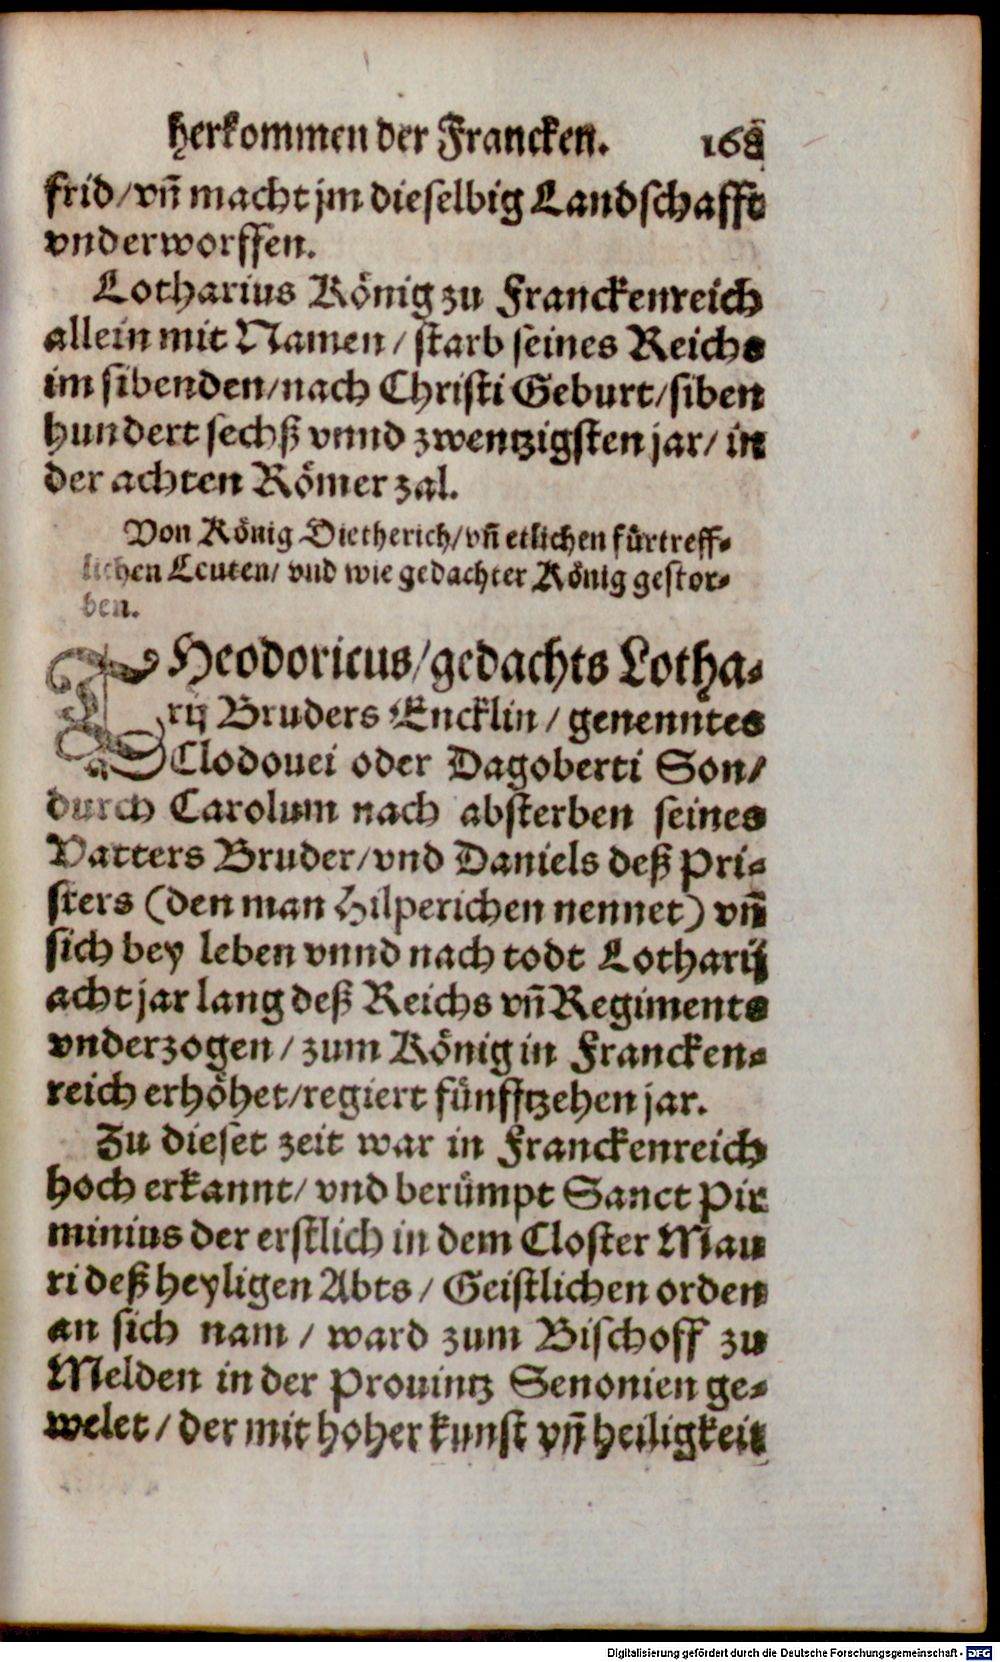 herkommen der Francken. 168
frid/vn̄ macht jm dieselbig Landschafft
vnderworffen.
Lotharius König zu Franckenreich
allein mit Namen / starb seines Reichs
im sibenden/nach Christi Geburt/siben
hundert sechß vnnd zwentzigsten jar/ in
der achten Römer zal.
Von König Dietherich/vn̄ etlichen fürtreff-
lichen Leuten/ vnd wie gedachter König gestor-
ben.
THeodoricus/gedachts Lotha-
rij Bruders Encklin / genenntes
Clodouei oder Dagoberti Son/
durch Carolum nach absterben seines
Vatters Bruder/vnd Daniels deß Pri-
sters (den man Hilperichen nennet) vn̄
sich bey leben vnnd nach todt Lotharij
acht jar lang deß Reichs vn̄ Regiments
vnderzogen / zum König in Francken-
reich erhöhet/regiert fünfftzehen jar.
Zu dieset zeit war in Franckenreich
hoch erkannt/ vnd berümpt Sanct Pir
minius der erstlich in dem Closter Mau
ri deß heyligen Abts / Geistlichen orden
an sich nam / ward zum Bischoff zu
Melden in der Prouintz Senonien ge-
welet / der mit hoher kunst vn̄ heiligkeit
Digitalisierung gefördert durch die Deutsche Forschungsgemeinschaft - DFG